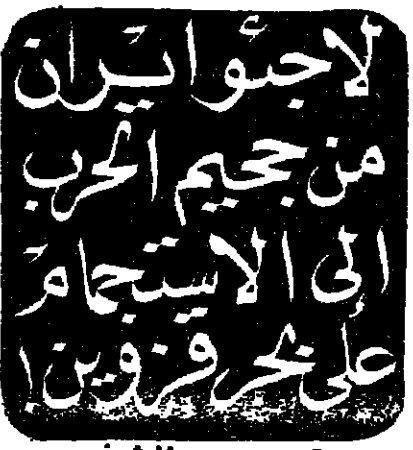 لاجئو ايران
من جحيم الحرب
الى الاستجمام
على بحر قزوين!